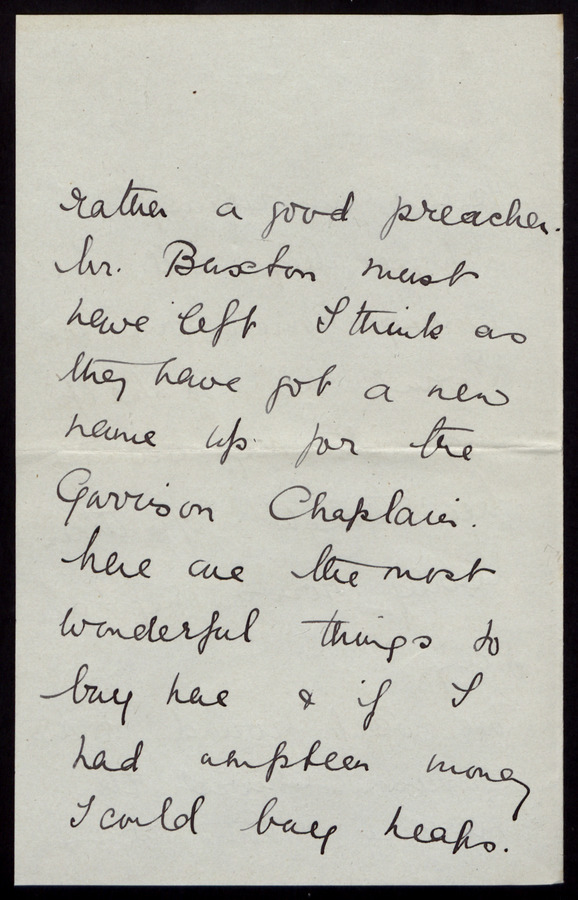 rather a good preacher.
Mr. Buxton must
have left I think as
they have got a new
name up for the
Garrison Chaplain.
here are the most
wonderful things to
buy here & if I
had umpteen money
I could buy heaps.